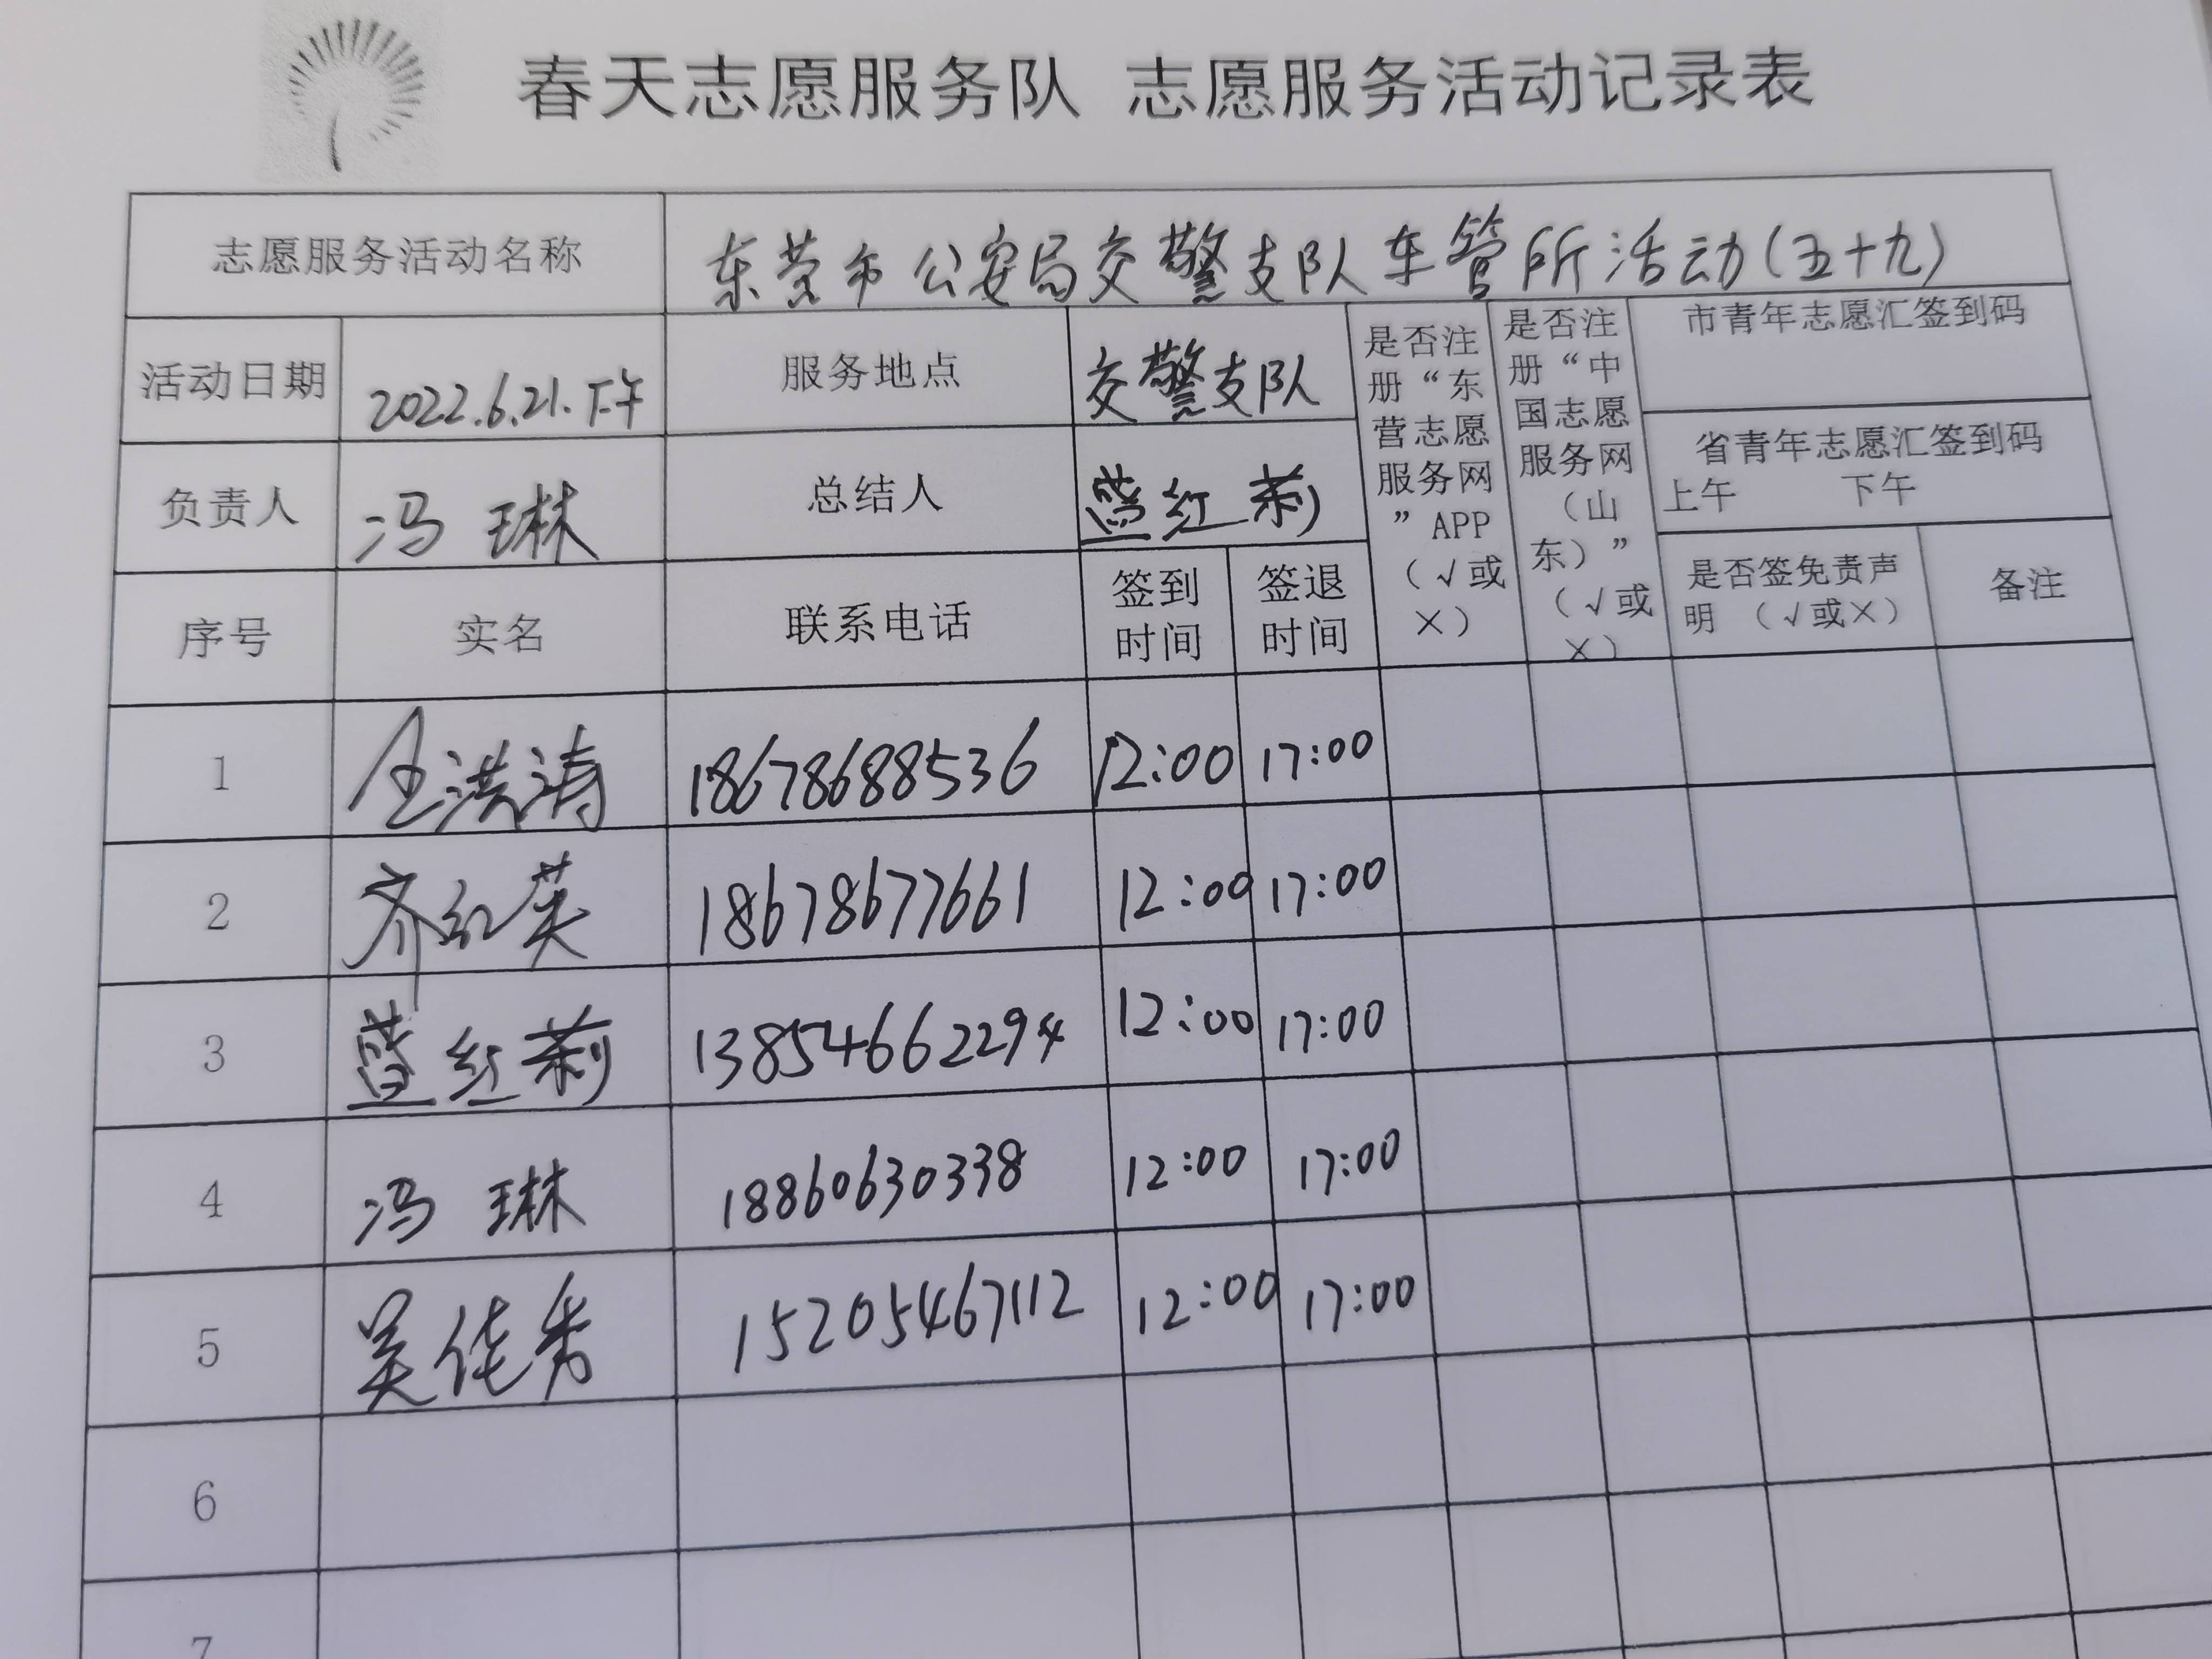 春天志愿服务队 志愿服务活动记录表
志愿服务活动名称 东营市公安局交警支队车管所活动(五十九)
活动日期 2022.6.21.下午 服务地点 交警支队
是否注册“东营志愿服务网”APP（√或×）
是否注册“中国志愿服务网（山东）”（√或×）
市青年志愿汇签到码
省青年志愿汇签到码
上午 下午
负责人 冯琳 总结人 红莉
序号 实名 联系电话 签到时间 签退时间 是否签免责声明（√或×） 备注
1 洪涛 18678688536 12:00 17:00
2 齐红英 18678677661 12:00 17:00
3 红莉 13854662294 12:00 17:00
4 冯琳 18860630338 12:00 17:00
5 吴佳秀 15205467112 12:00 17:00
6
7